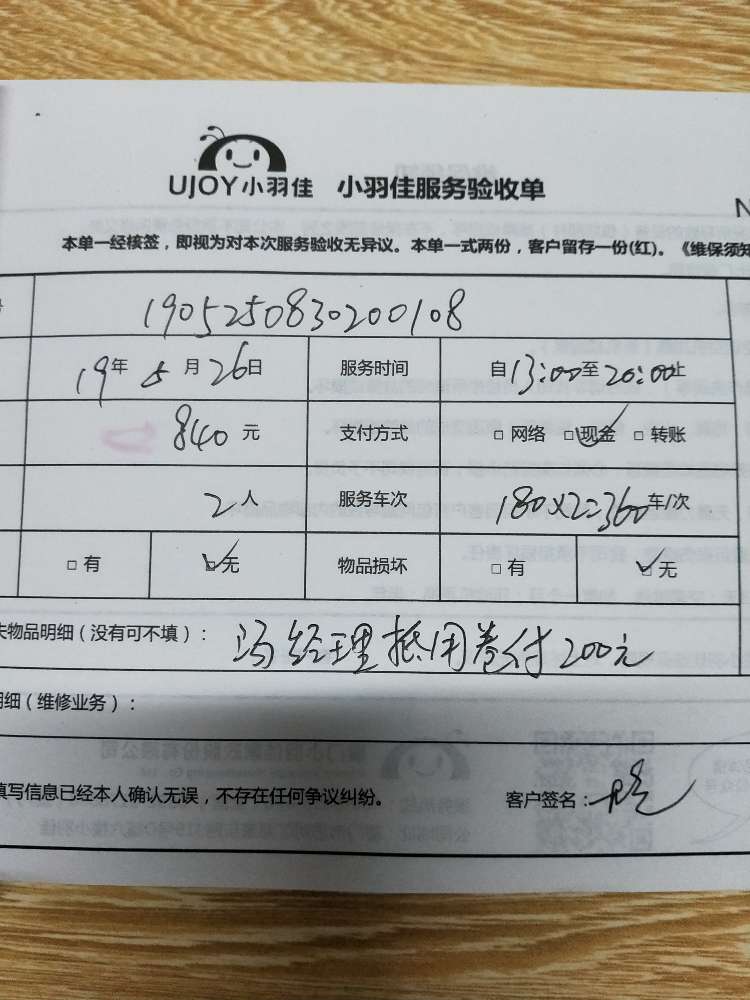 UJOY小羽佳 小羽佳服务验收单
N
本单一经核签，即视为对本次服务验收无异议。本单一式两份，客户留存一份(红)。《维保须知
1905250830200108
19年 5月26日 服务时间 自13:00至20:00止
840元 支付方式 □ 网络 □现金 □ 转账
2人 服务车次 180×2=360车/次
□ 有 □无 物品损坏 □ 有 □无
失物品明细（没有可不填）： 冯经理抵用卷付200元
明细（维修业务）：
填写信息已经本人确认无误，不存在任何争议纠纷。 客户签名：